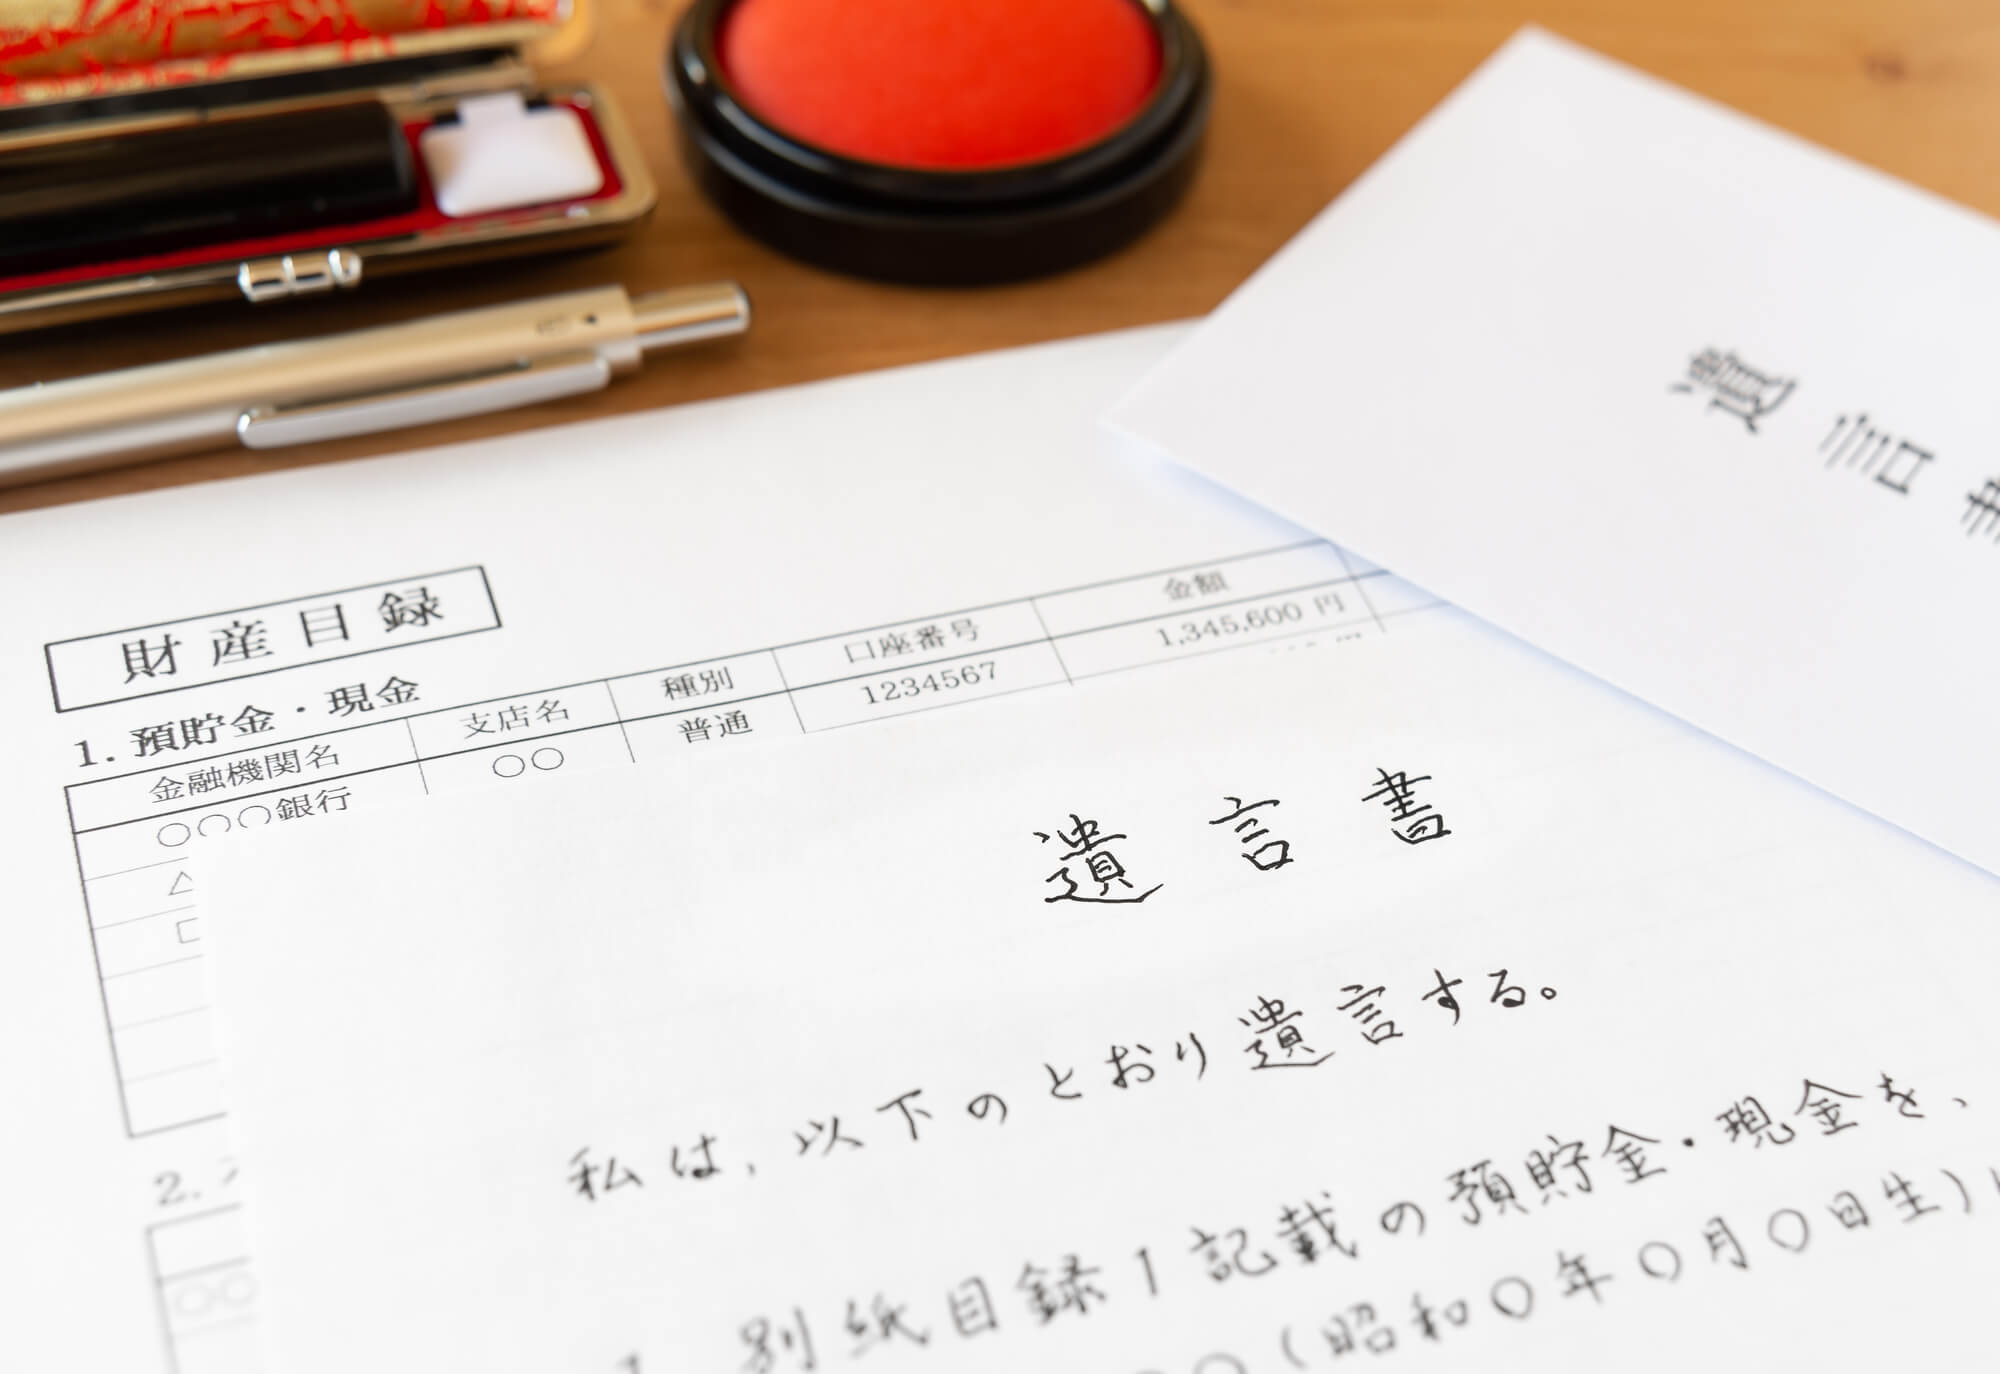 遺言書
財産目録
1. 預貯金・現金
金融機関名 支店名 種別 口座番号 金額
○○○銀行 ○○ 普通 1234567 1,345,600 円
△
2.
遺言書
私は、以下のとおり遺言する。
1 別紙目録1記載の預貯金・現金を、
○○(昭和○年○月○日生)